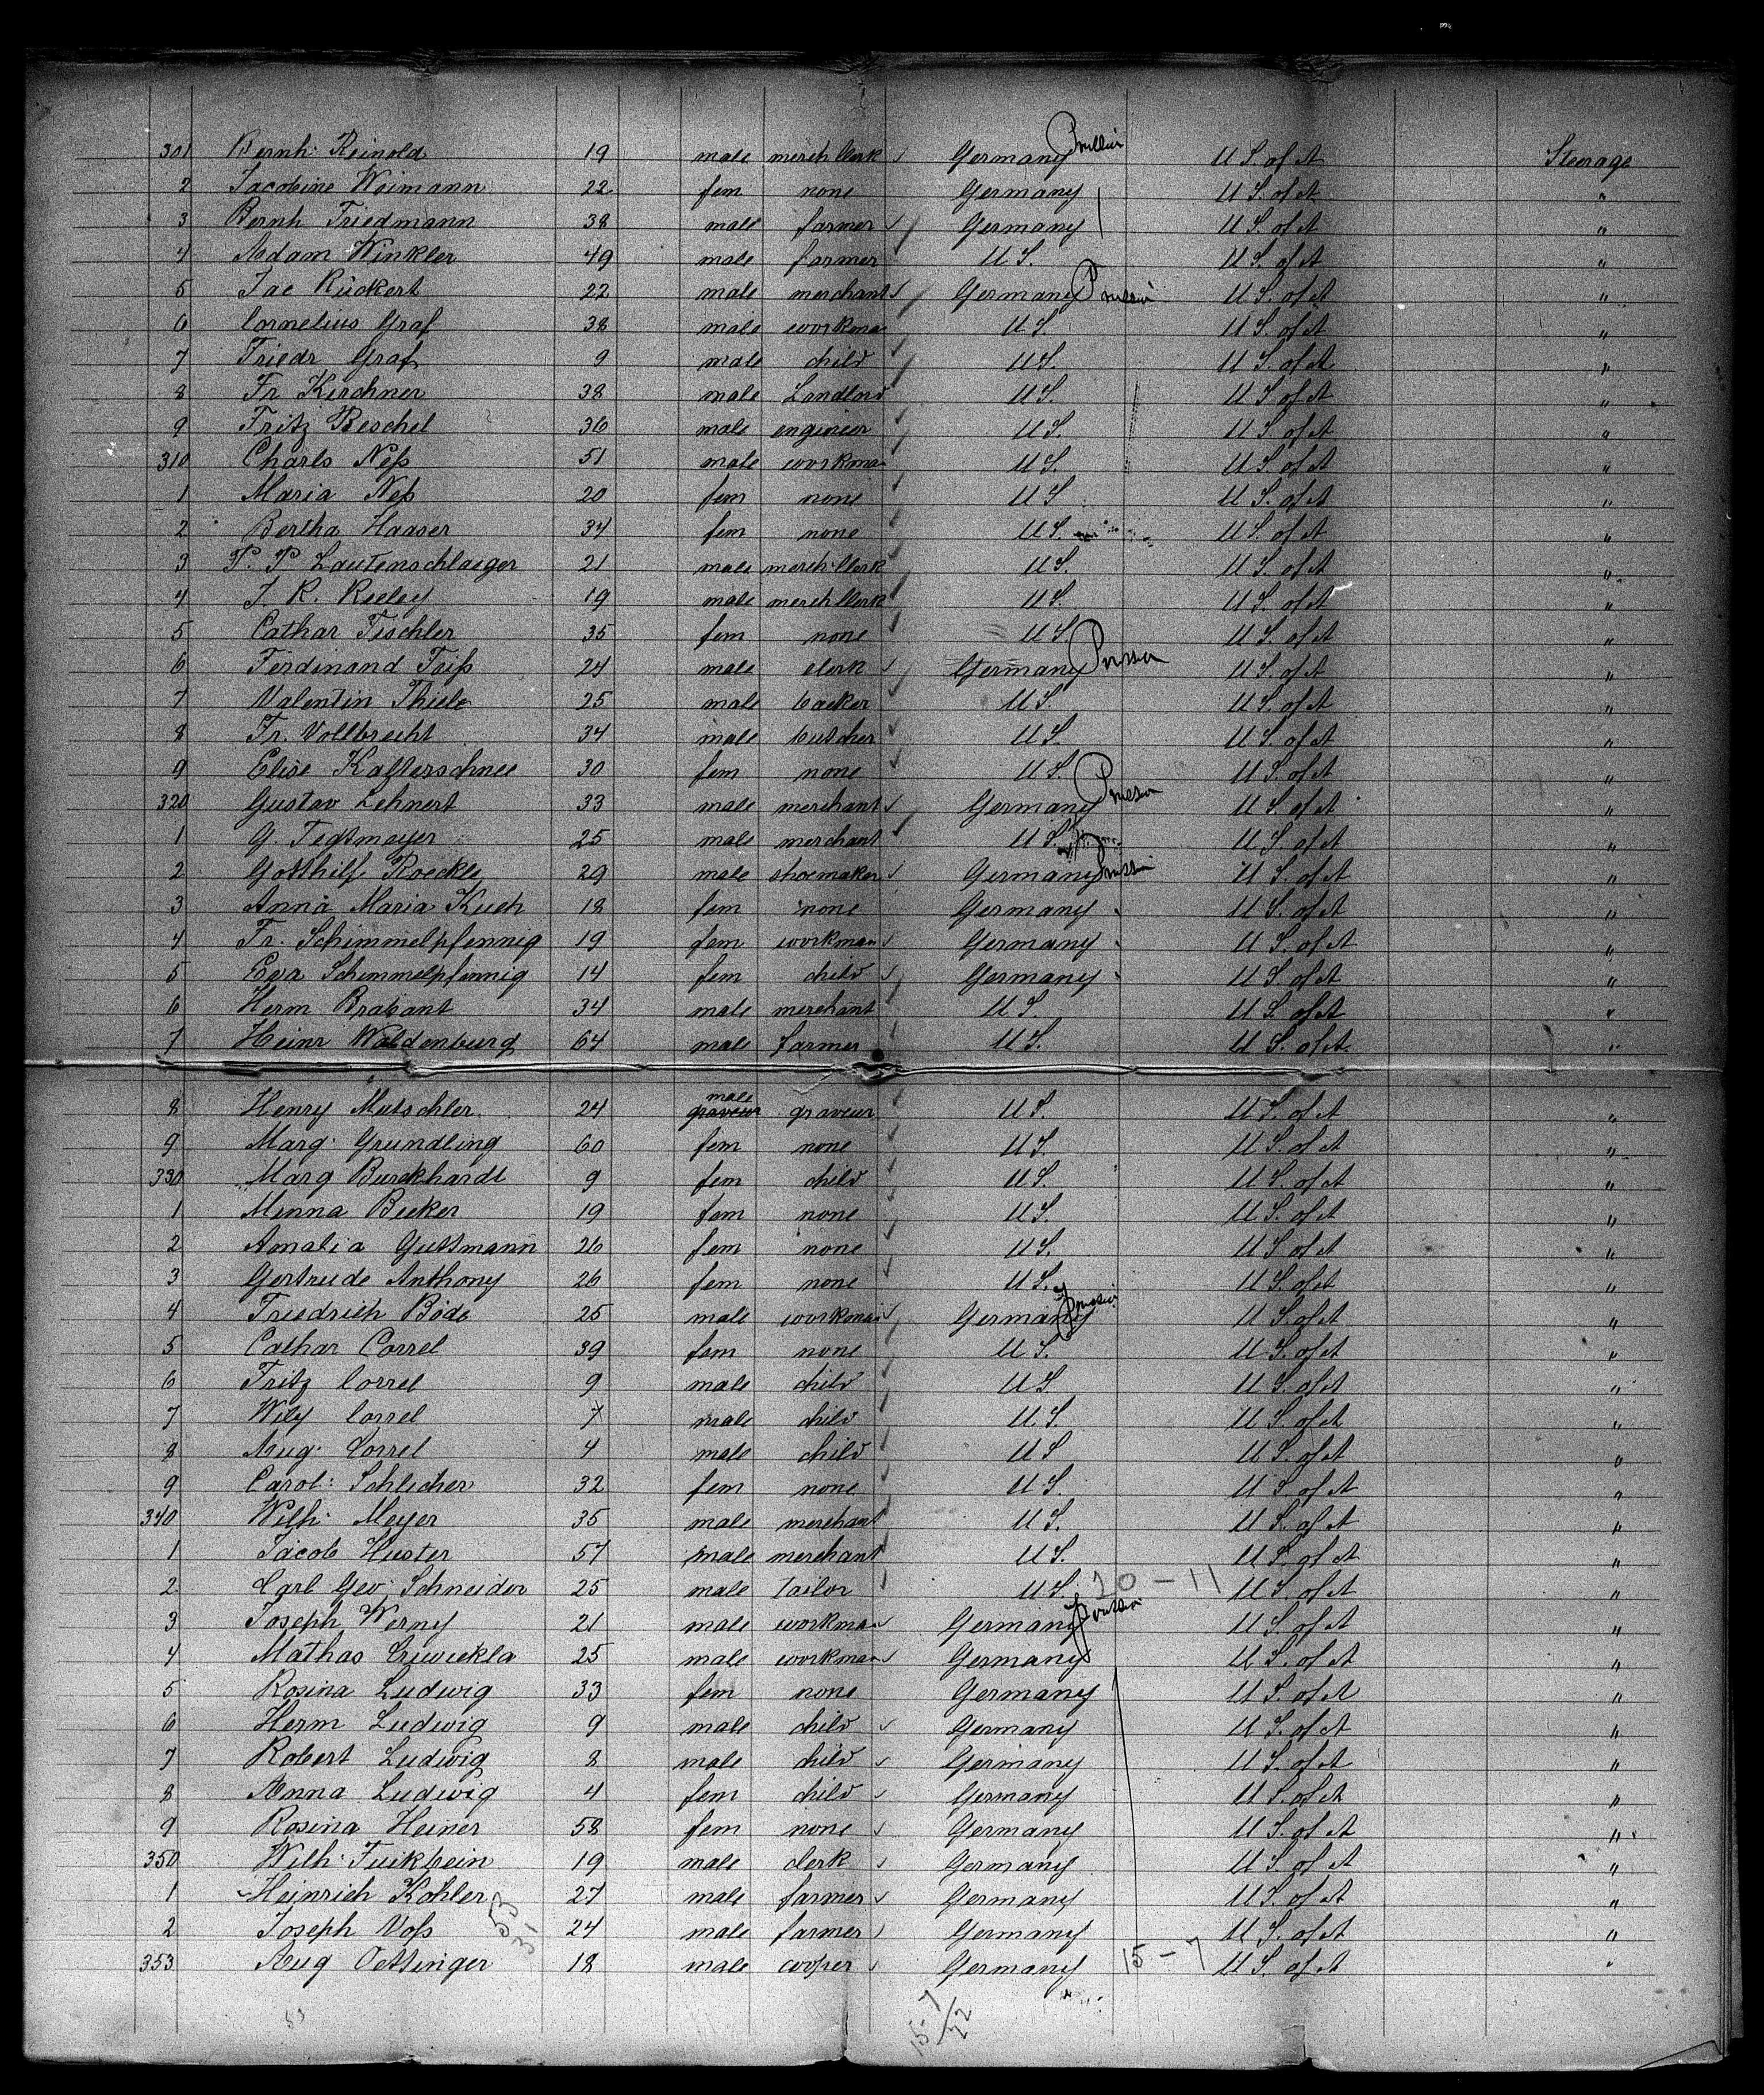 301 Bernh. Reinold 19 male merch Clerk Germany U S. of A Steerage
2 Jacobine Weimann 22 fem none Germany U S. of A "
3 Bernh Friedmann 38 male farmer Germany U S. of A "
4 Adam Winkler 49 male farmer U S. U S. of A "
5 Jac Rückert 22 male merchant Germany Prussia U S. of A "
6 Cornelius Graf 38 male workman U S. U S. of A "
7 Friedr Graf 9 male child U S. U S. of A "
8 Fr Kirchner 38 male Landlord U S. U S. of A "
9 Fritz Reschel 36 male engineer U S. U S. of A "
310 Charls Neß 51 male workman U S. U S. of A "
1 Maria Neß 20 fem none U S U S. of A "
2 Bertha Haaser 34 fem none U S. U S. of A "
3 P. P Lautenschlaeger 21 male merch Clerk U S. U S. of A "
4 J. R. Reeley 19 male merch Clerk U S. U S. of A "
5 Cathar Tischler 35 fem none U S. U S. of A "
6 Ferdinand Feiß 24 male clerk Germany Prussia U S. of A "
7 Valentin Thiele 25 male backer U S. U S. of A "
8 Fr. Vollbrecht 34 male butcher U S. U S. of A "
9 Elise Kalterschnee 30 fem none U S. U S. of A "
320 Gustav Lehnert 33 male merchant Germany Prussia U S. of A "
1 G. Tegtmeyer 25 male merchant U S. U S. of A "
2 Gotthilf Roeckle 29 male shoemaker Germany Prussia U S. of A "
3 Anna Maria Kuch 18 fem none Germany U S. of A "
4 Fr. Schimmelpfennig 19 fem workman Germany U S. of A "
5 Eva Schimmelpfennig 14 fem child Germany U S. of A "
6 Herm Brabant 34 male merchant U S. U S. of A "
7 Heinr Waldenburg 64 male farmer U S. U S. of A "
8 Henry Mutschler 24 male graveur graveur U S. U S. of A "
9 Marg. Grundling 60 fem none U S. U S. of A "
330 Marg Burckhardt 9 fem child U S. U S. of A "
1 Minna Becker 19 fem none U S. U S. of A "
2 Amalia Guttmann 26 fem none U S. U S of A "
3 Gertrude Anthony 26 fem none U S. U S. of A "
4 Friedrich Bode 25 male workman Germany Prussia U S. of A "
5 Cathar Correl 39 fem none U S. U S. of A "
6 Fritz Correl 9 male child U S. U S. of A "
7 Wily Correl 7 male child U S. U S. of A "
8 Aug. Correl 4 male child U S U S. of A "
9 Carol: Schlicher 32 fem none U S. U S. of A "
340 Wilh. Meyer 35 male merchant U S. U S. of A "
1 Jacob Huster 57 male merchant U S. U S. of A "
2 Carl Geo Schneider 25 male tailor U S. 20 - 11 U S. of A "
3 Joseph Werny 21 male workman Germany Prussia U S. of A "
4 Mathas 25 male workman Germany U S. of A "
5 Rosina Ludwig 33 fem none Germany U S. of A "
6 Herm Ludwig 9 male child Germany U S. of A "
7 Robert Ludwig 8 male child Germany U S. of A "
8 Anna Ludwig 4 fem child Germany U S. of A "
9 Rosina Heiner 58 fem none Germany U S. of A "
350 Wilh. 19 male clerk Germany U S. of A "
1 Heinrich Kohler 27 male farmer Germany U S. of A "
2 Joseph Voß 53 31 24 male farmer Germany U S. of A "
353 Aug Oettinger 18 male cooper Germany 15 - 7 U S. of A "
53 15-7/22